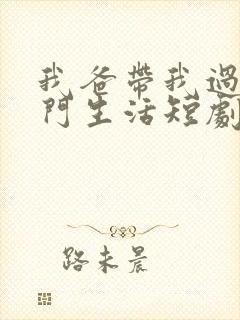 我爸帶我過
門生活短劇
路未晨